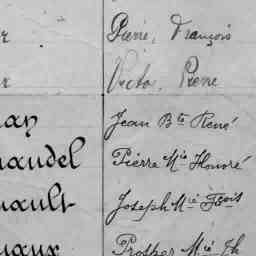 r Pierre, François
r Victor, René
an Jean Bte René
naudel Pierre Mie Honoré
nault Joseph Mie Fçois
uaux Prosper Mie Jh